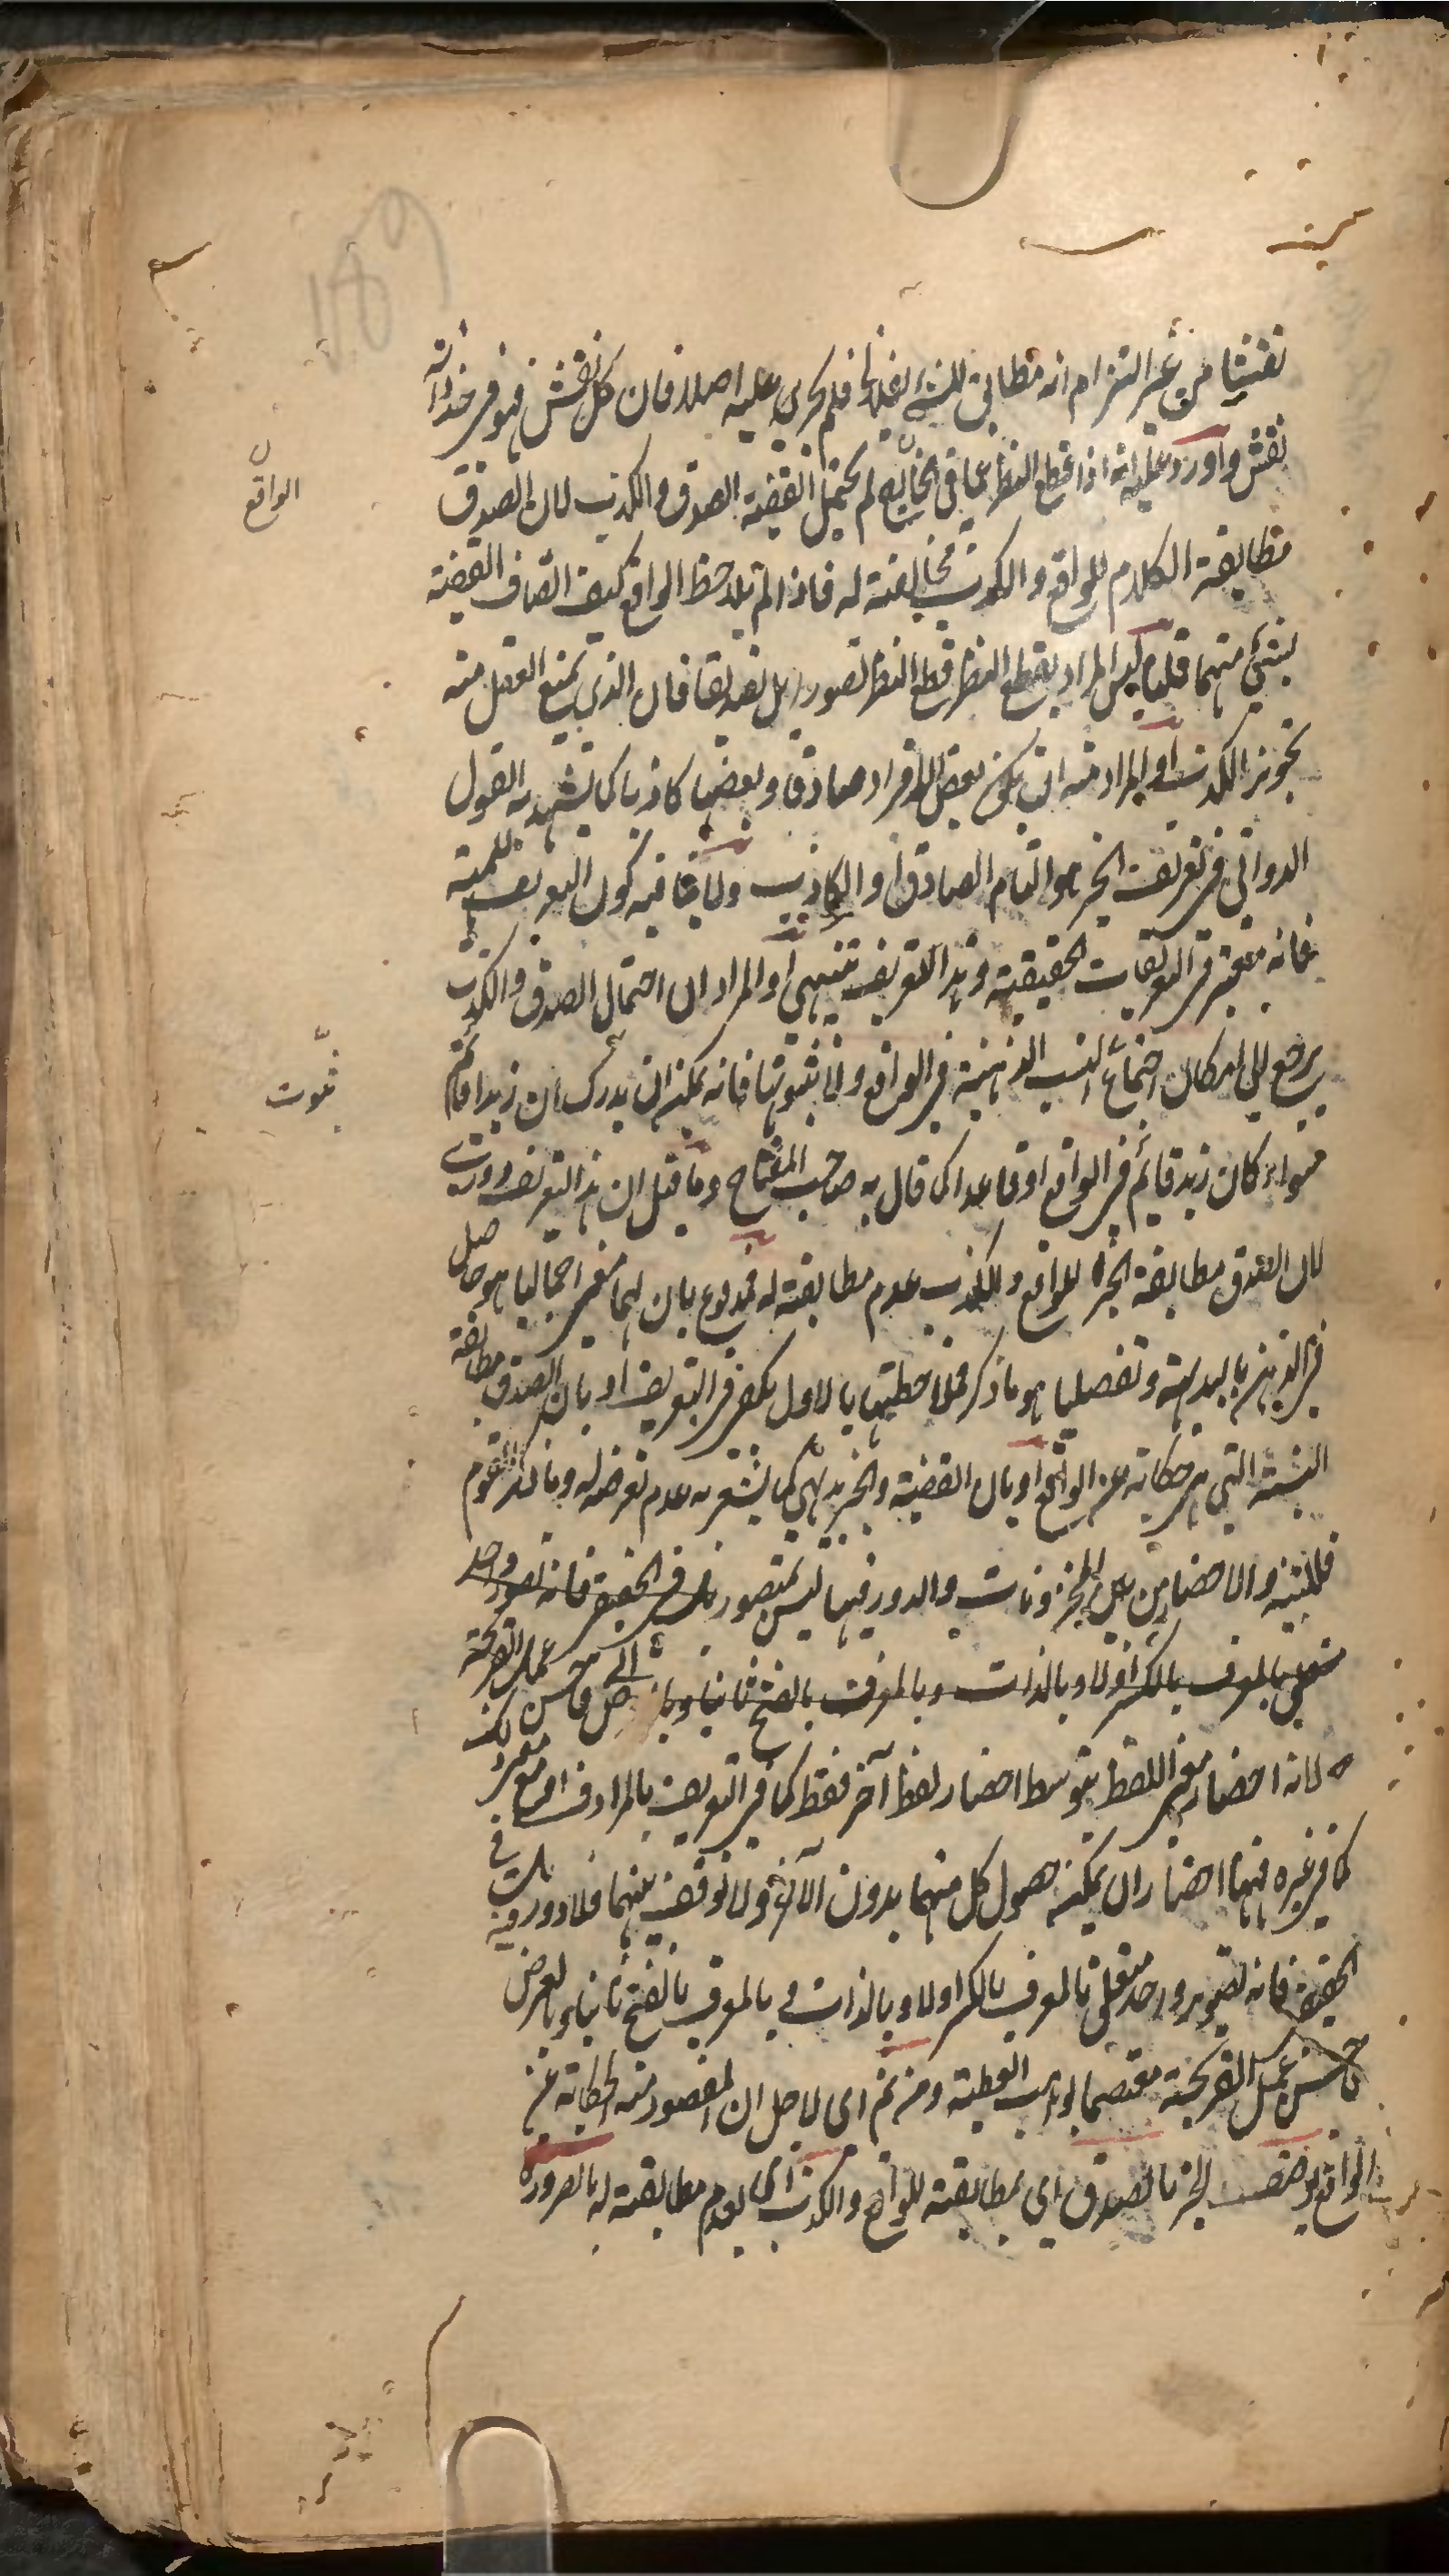 نقشا من غير التزام انه مطابق للشئ الفلاني فلم يجرى عليه اصلا فان كل نقش فهو في حد ذاته
نقش واورد عليه انه اذا قطع النظر عما في الخارج لم يحتمل القضية الصدق والكذب لان الصدق
مطابقة الكلام للواقع والكذب مخالفته له فاذا لم يلاحظ الواقع كيف اتصاف القضية
بشئ منهما قلنا ليس المراد بقطع النظر قطع النظر تصورا بل تصديقا فان الذي يمنع العقل منه
تجويز الكذب او المراد منه ان يكون بعض الافراد صادقا وبعضها كاذبا كما يشهد به القول
الدواني في تعريف الخبر هو التام الصادق او الكاذب ولا ينافيه كون التعريف للمهية
فانه معتبر في التعريفات الحقيقية وهذا التعريف تنبيهي او المراد ان احتمال الصدق والكذب
يرجع الى امكان اجتماع النسب الذهنية في الواقع ولا ثبوتها فانه يمكن ان يدرك ان زيدا قائم
سواء كان زيد قائم في الواقع او قاعدا كما قال به صاحب المفتاح وما قيل ان هذا التعريف دورى
لان الصدق مطابقة الخبر للواقع والكذب عدم مطابقته له فمدفوع بان لهما معنى اجماليا هو حاصل
في الذهن بالبداهة وتفصيليا هو ما ذكر فملاحظتهما بالاول يكفى في التعريف او بان الصدق مطابقة
النسبة التي هي حكاية عن الواقع او بان القضية والخبر بديهى كما يشعر به عدم تعرضه له وما ذكر القوم
فللتنبيه والاحضار من بين المخزونات والدور فيها ليس بمتصور في الحقيقة فانه تصور واحد
متعلق بالمعرف بالكسر اولا وبالذات وبالمعرف بالفتح ثانيا وبالعرض فاحسن عمل القريحة
لانه احضار معنى اللفظ بتوسط احضار لفظ آخر فقط كما في التعريف بالمرادف او مع معنى ذلك
كما في غيره فههنا احضاران يمكن حصول كل منهما بدون الآخر ولا توقف بينهما فلا دور فيه في
الحقيقة فانه تصوير واحد متعلق بالمعرف بالكسر اولا وبالذات وبالمعرف بالفتح ثانيا وبالعرض
فاحسن عمل القريحة معتصما بواهب العطية ومن ثم اى لاجل ان المقصود منه الحكاية عن
الواقع يوصف الخبر بالصدق اى بمطابقته للواقع والكذب اى بعدم مطابقته له بالضرورة
الواقع
ثبوت